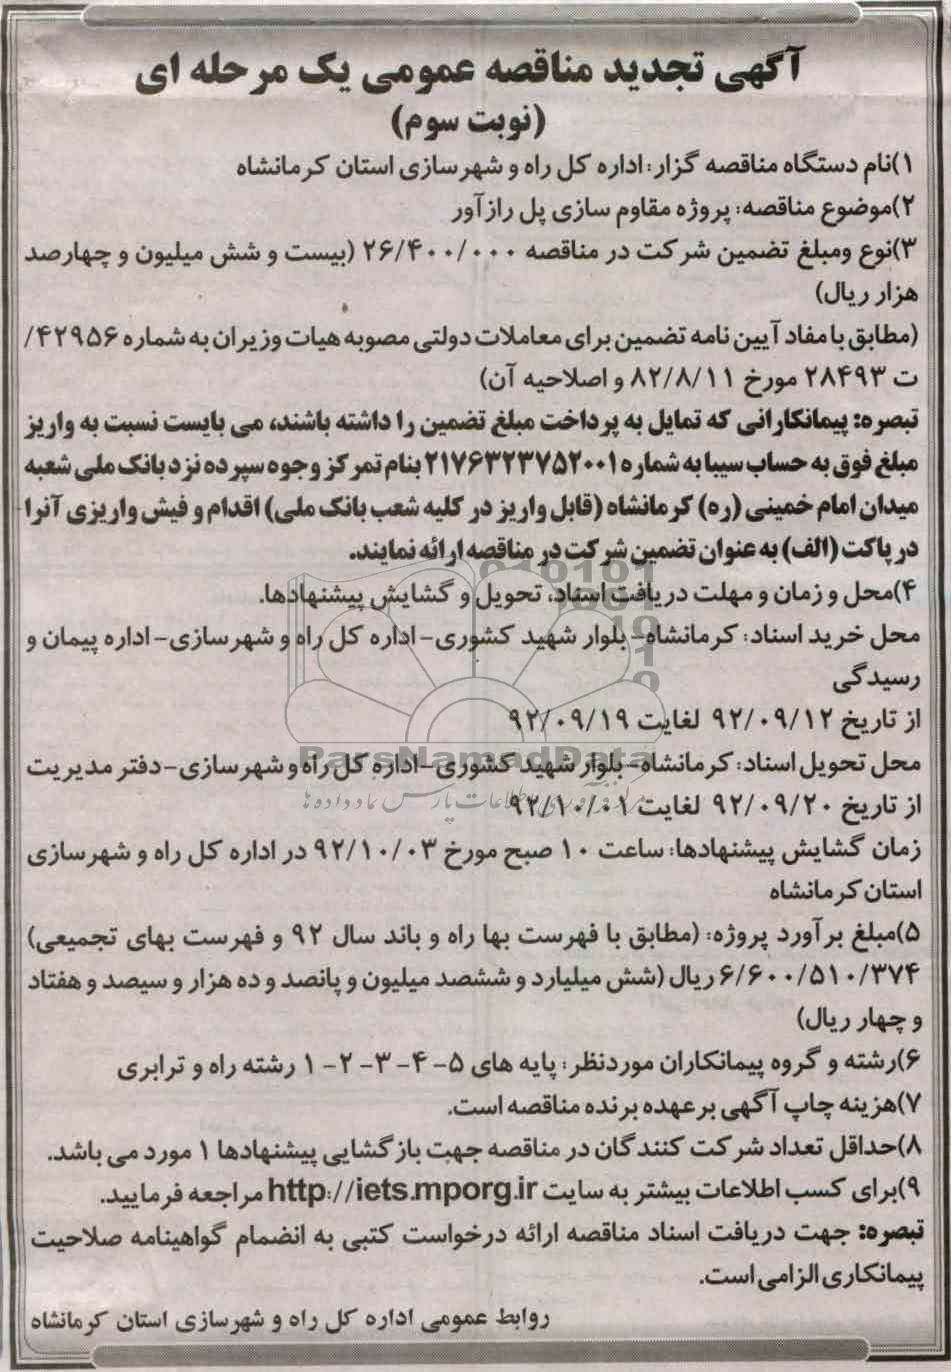 آگهی تجدید مناقصه عمومی یک مرحله ای
(نوبت سوم)
۱)نام دستگاه مناقصه گزار: اداره کل راه و شهرسازی استان کرمانشاه
۲)موضوع مناقصه: پروژه مقاوم سازی پل رازآور
۳)نوع ومبلغ تضمین شرکت در مناقصه ۲۶/۴۰۰/۰۰۰ (بیست و شش میلیون و چهارصد
هزار ریال)
(مطابق با مفاد آیین نامه تضمین برای معاملات دولتی مصوبه هیات وزیران به شماره ۴۲۹۵۶/
ت ۲۸۴۹۳ مورخ ۸۲/۸/۱۱ و اصلاحیه آن)
تبصره: پیمانکارانی که تمایل به پرداخت مبلغ تضمین را داشته باشند، می بایست نسبت به واریز
مبلغ فوق به حساب سیبا به شماره ۲۱۷۶۳۲۳۷۵۲۰۰۱ بنام تمرکز وجوه سپرده نزد بانک ملی شعبه
میدان امام خمینی (ره) کرمانشاه (قابل واریز در کلیه شعب بانک ملی) اقدام و فیش واریزی آنرا
در پاکت (الف) به عنوان تضمین شرکت در مناقصه ارائه نمایند.
۴)محل و زمان و مهلت دریافت اسناد، تحویل و گشایش پیشنهادها.
محل خرید اسناد: کرمانشاه- بلوار شهید کشوری- اداره کل راه و شهرسازی- اداره پیمان و
رسیدگی
از تاریخ ۹۲/۰۹/۱۲ لغایت ۹۲/۰۹/۱۹
ParsNamadData
محل تحویل اسناد: کرمانشاه- بلوار شهید کشوری- اداره کل راه و شهرسازی- دفتر مدیریت
از تاریخ ۹۲/۰۹/۲۰ لغایت ۹۲/۱۰/۰۱
زمان گشایش پیشنهادها: ساعت ۱۰ صبح مورخ ۹۲/۱۰/۰۳ در اداره کل راه و شهرسازی
استان کرمانشاه
۵)مبلغ برآورد پروژه: (مطابق با فهرست بها راه و باند سال ۹۲ و فهرست بهای تجمیعی)
۶/۶۰۰/۵۱۰/۳۷۴ ریال (شش میلیارد و ششصد میلیون و پانصد و ده هزار و سیصد و هفتاد
و چهار ریال)
۶)رشته و گروه پیمانکاران موردنظر: پایه های ۵- ۴- ۳- ۲- ۱ رشته راه و ترابری
۷)هزینه چاپ آگهی برعهده برنده مناقصه است.
۸)حداقل تعداد شرکت کنندگان در مناقصه جهت بازگشایی پیشنهادها ۱ مورد می باشد.
۹)برای کسب اطلاعات بیشتر به سایت http://iets.mporg.ir مراجعه فرمایید.
تبصره: جهت دریافت اسناد مناقصه ارائه درخواست کتبی به انضمام گواهینامه صلاحیت
پیمانکاری الزامی است.
روابط عمومی اداره کل راه و شهرسازی استان کرمانشاه